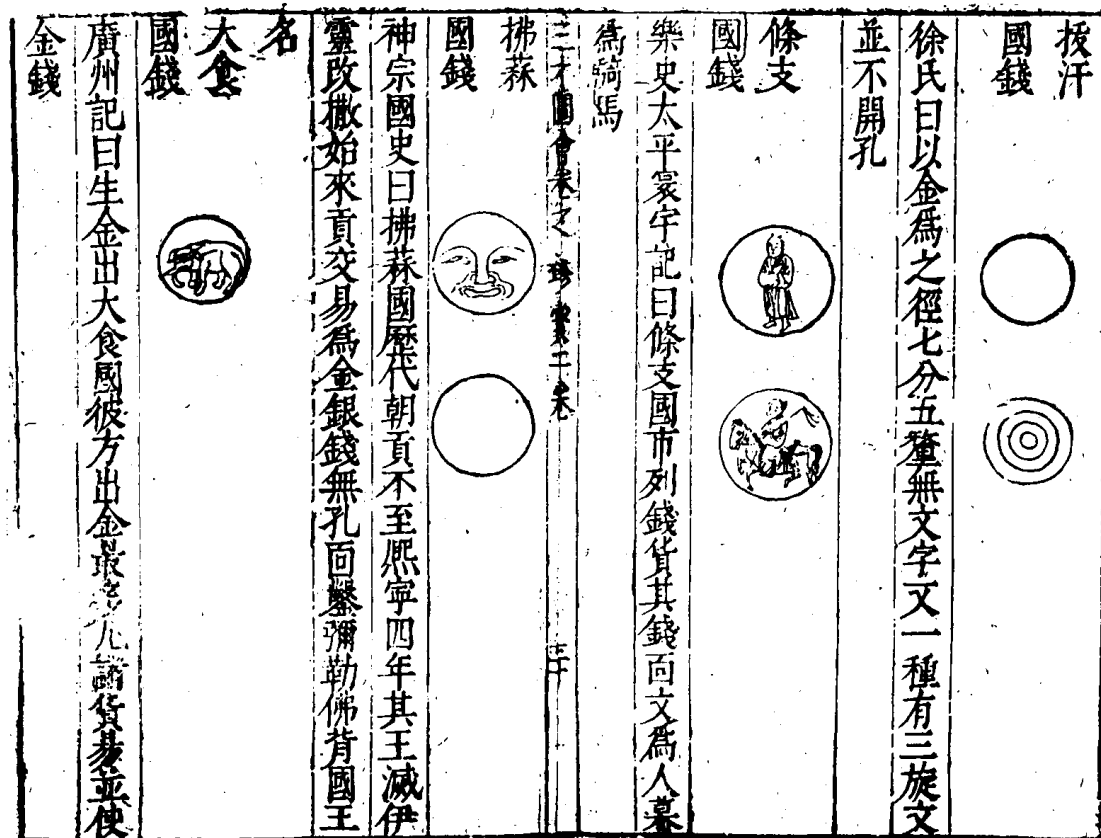 拔汗
國錢
徐氏曰以金爲之徑七分五釐無文字又一種有三旋文
並不開孔
條支
國錢
樂史太平寰宇記曰條支國市列錢貨其錢面文爲人幕
爲騎馬
三才圖會卷之 珍寶二卷
拂菻
國錢
神宗國史曰拂菻國歷代朝貢不至熈寧四年其王滅伊
靈改撒始來貢交易爲金銀錢無孔面鑿彌勒佛背國王
名
大食
國錢
廣州記曰生金出大食國彼方出金最多凡諸貨易並使
金錢